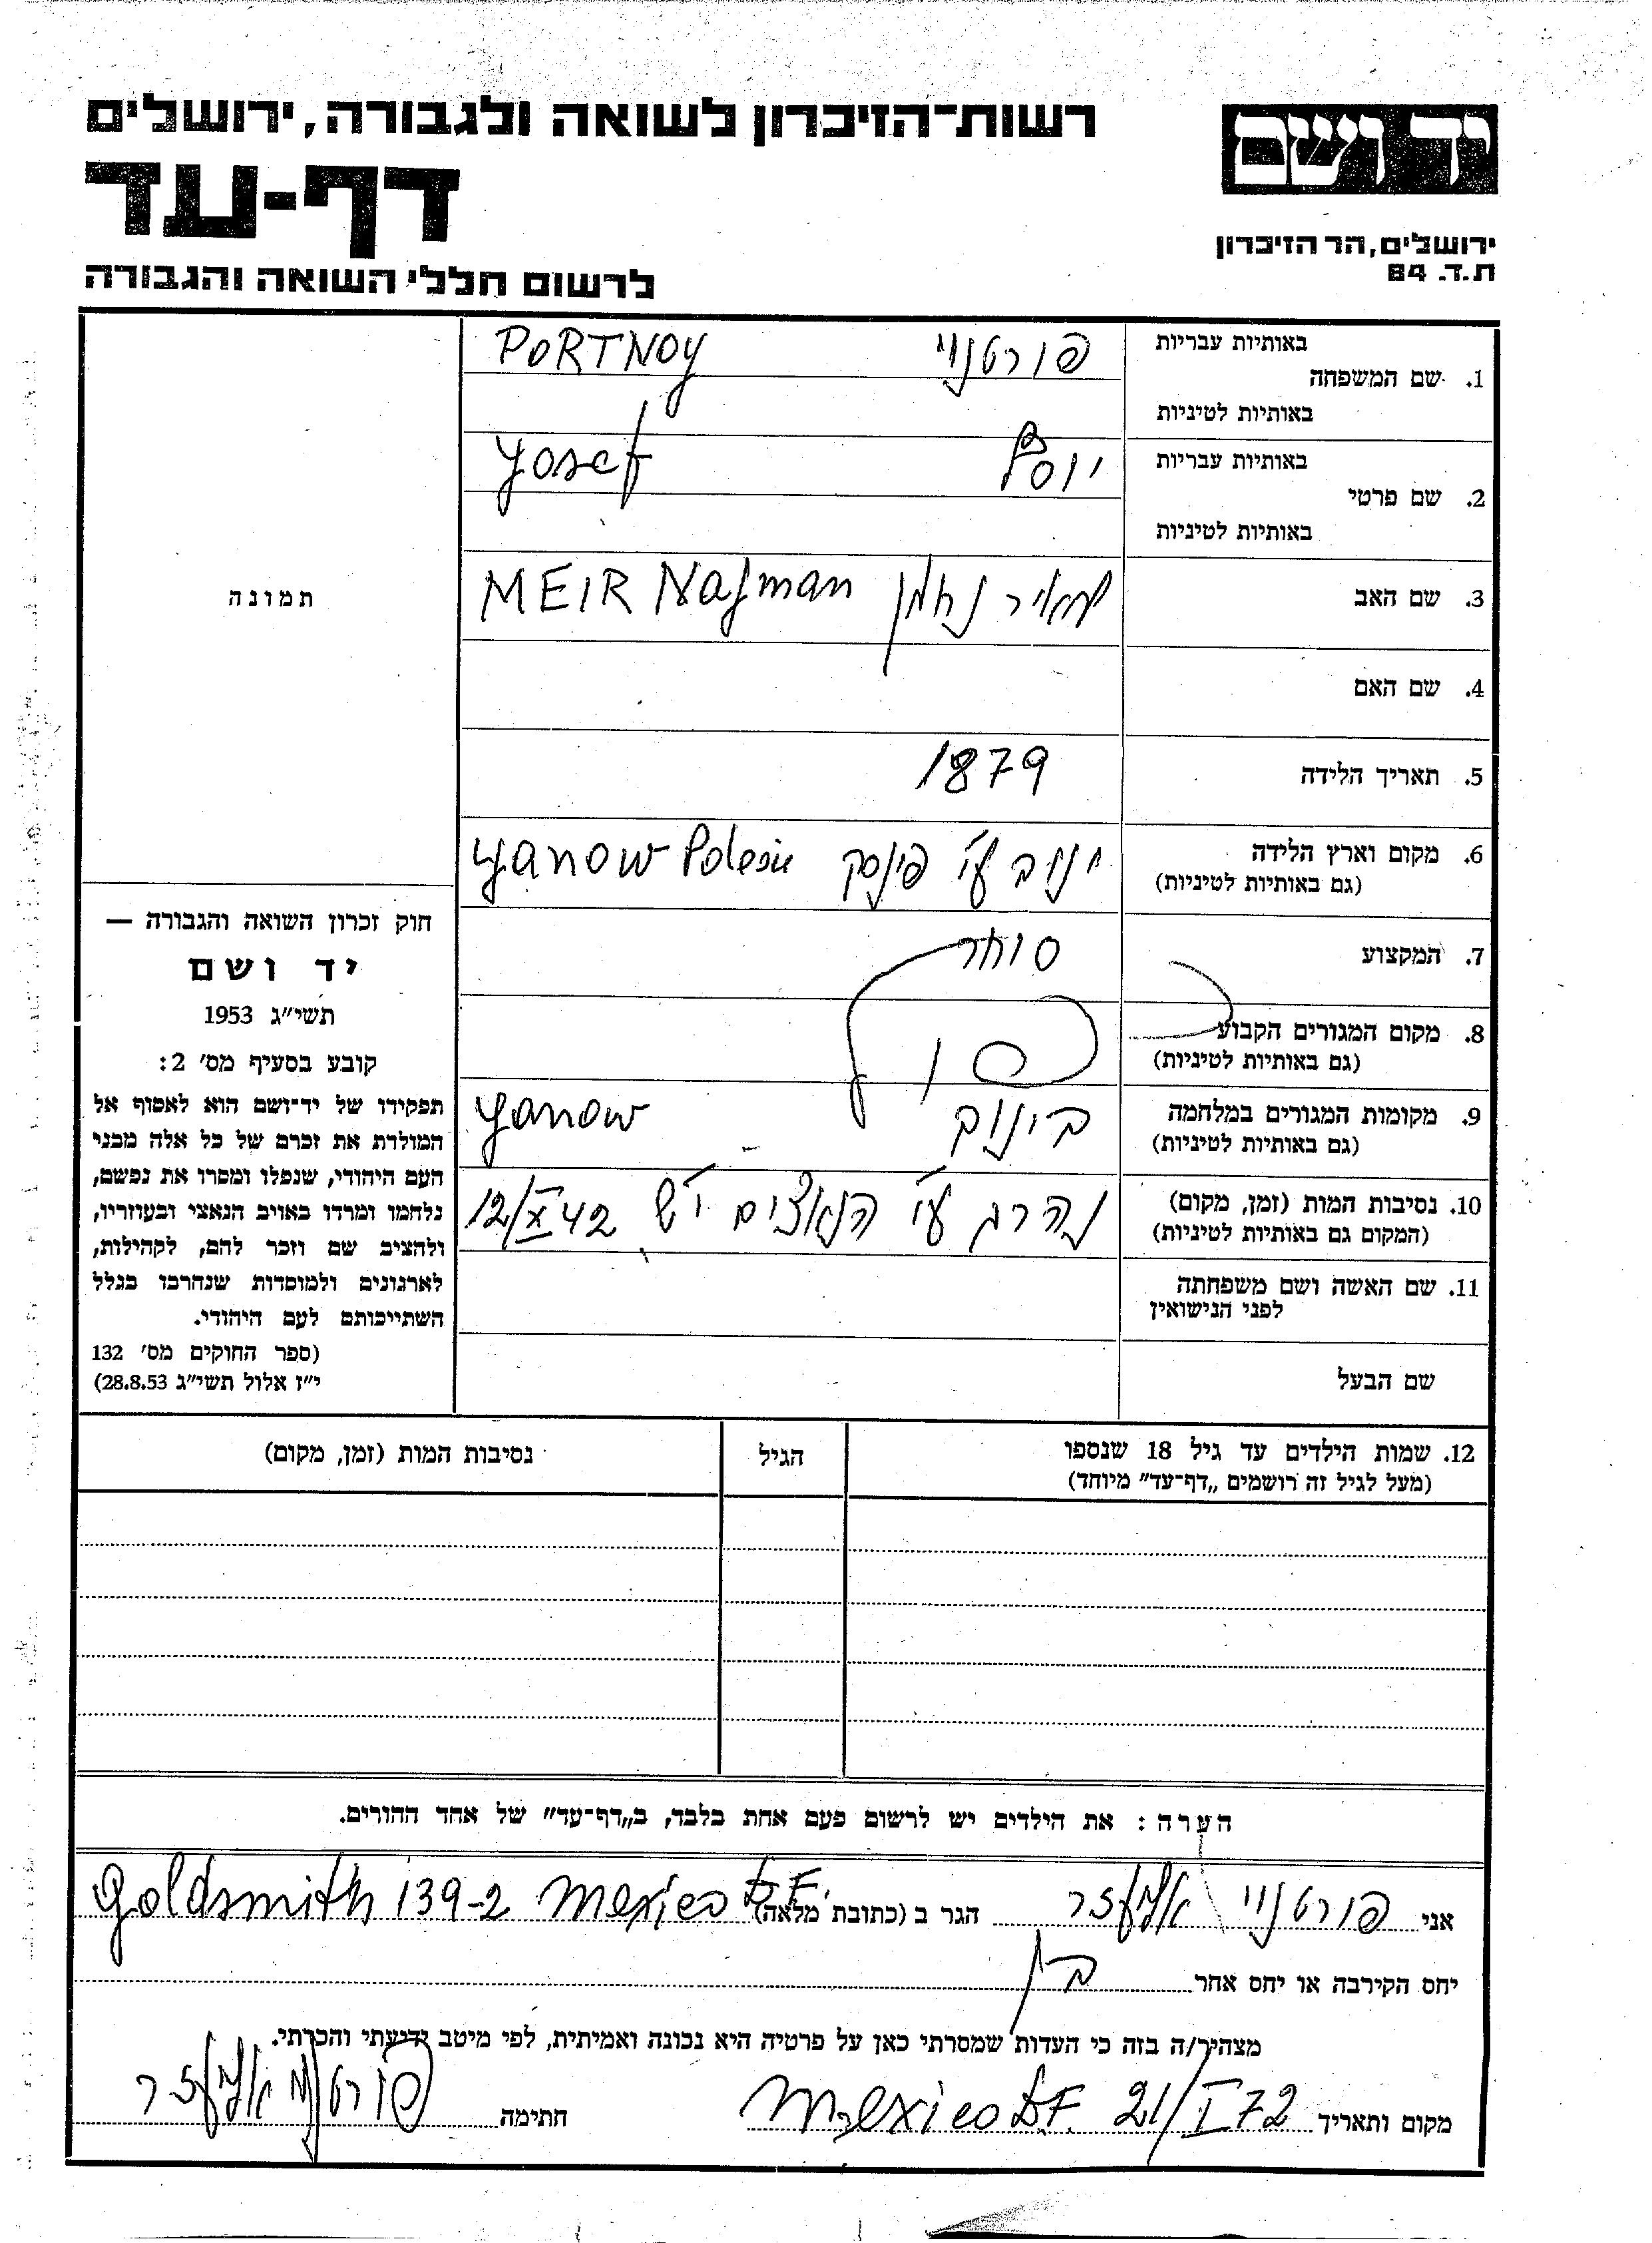 רשות־הזיכרון לשואה ולגבורה, ירושלים
יד ושם
דף-עד
ירושלים, הר הזיכרון
ת.ד. 84
לרשום חללי השואה והגבורה
באותיות עבריות
1. שם המשפחה
באותיות לטיניות
פורטנוי PORTNOY
באותיות עבריות
2. שם פרטי
באותיות לטיניות
יוסף Yosef
3. שם האב
מאיר נחמן MEIR Najman
תמונה
4. שם האם
5. תאריך הלידה
1879
6. מקום וארץ הלידה
(גם באותיות לטיניות)
ינוב ע"י פינסק Yanow Polesie
7. המקצוע
סוחר
8. מקום המגורים הקבוע
(גם באותיות לטיניות)
9. מקומות המגורים במלחמה
(גם באותיות לטיניות)
בינוב Yanow
10. נסיבות המות (זמן, מקום)
(המקום גם באותיות לטיניות)
נהרג ע"י הנאצים י"ש 12/X 42
11. שם האשה ושם משפחתה
לפני הנישואין
שם הבעל
חוק זכרון השואה והגבורה —
יד ושם
תשי״ג 1953
קובע בסעיף מס׳ 2:
תפקידו של יד־ושם הוא לאסוף אל
המולדת את זכרם של כל אלה מבני
העם היהודי, שנפלו ומסרו את נפשם,
נלחמו ומרדו באויב הנאצי ובעוזריו,
ולהציב שם וזכר להם, לקהילות,
לארגונים ולמוסדות שנחרבו בגלל
השתייכותם לעם היהודי.
(ספר החוקים מס׳ 132
י״ז אלול תשי״ג 28.8.53)
12. שמות הילדים עד גיל 18 שנספו
(מעל לגיל זה רושמים „דף־עד״ מיוחד)
הגיל
נסיבות המות (זמן, מקום)
הערה: את הילדים יש לרשום פעם אחת בלבד, ב„דף־עד״ של אחד ההורים.
אני פורטנוי אליעזר הגר ב (כתובת מלאה) Goldsmith 139-2 Mexico D.F.
יחס הקירבה או יחס אחר בן
מצהיר/ה בזה כי העדות שמסרתי כאן על פרטיה היא נכונה ואמיתית, לפי מיטב ידיעתי והכרתי.
מקום ותאריך Mexico D.F. 21/I 72 חתימה פורטנוי אליעזר